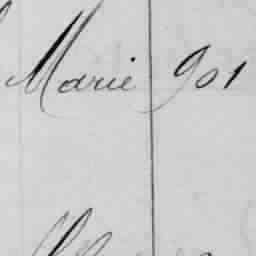 Marie 901